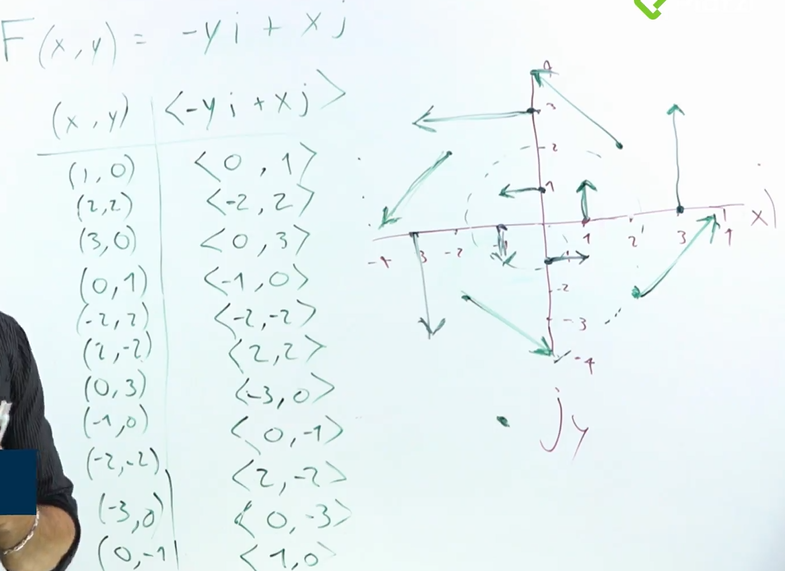 F(x,y) = -yi + xj
(x,y) <-yi + xj>
(1,0) <0,1>
(2,2) <-2,2>
(3,0) <0,3>
(0,1) <-1,0>
(-2,2) <-2,-2>
(2,-2) <2,2>
(0,3) <-3,0>
(-1,0) <0,-1>
(-2,-2) <2,-2>
(-3,0) <0,-3>
(0,-1) <1,0>
4
3
2
1
-4 3 -2 -1 1 2 3 4 x)
-2
-3
-4
jy